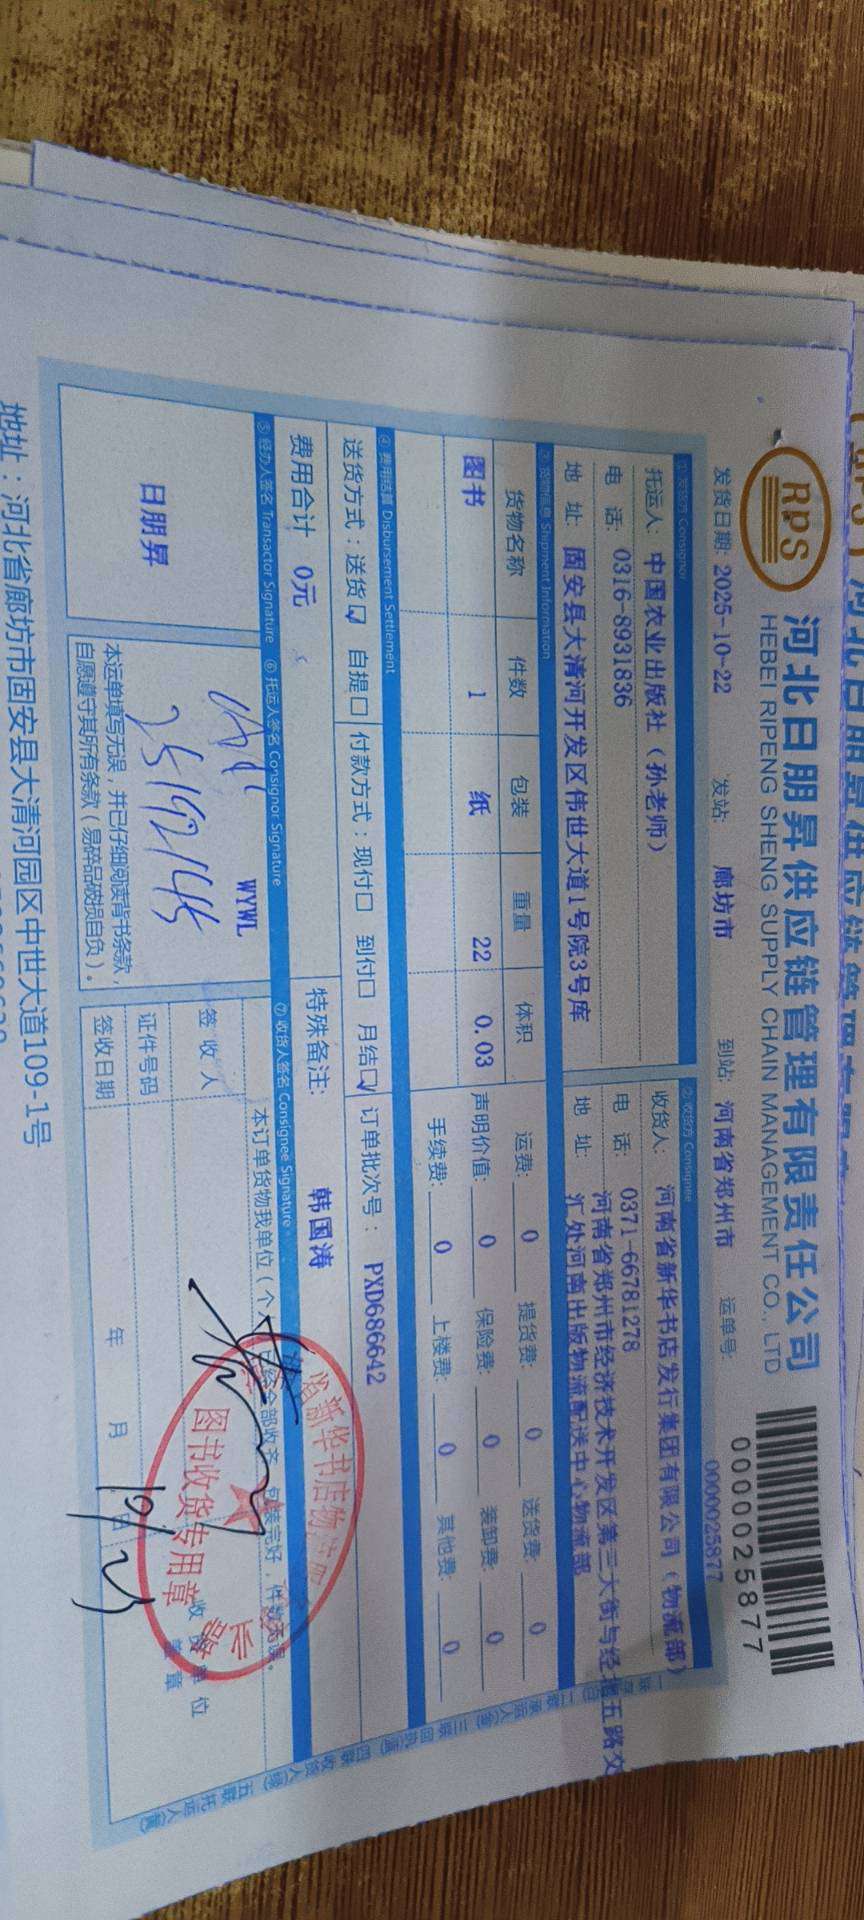 RPS
河北日朋昇供应链管理有限责任公司
HEBEI RIPENG SHENG SUPPLY CHAIN MANAGEMENT CO., LTD
0000025877
发货日期: 2025-10-22 发站: 廊坊市 到站: 河南省郑州市 运单号: 0000025877
① 发货方 Consignor
托运人: 中国农业出版社(孙老师)
电 话: 0316-8931836
地 址: 固安县大清河开发区伟世大道1号院3号库
② 收货方 Consignee
收货人: 河南省新华书店发行集团有限公司(物流部)
电 话: 0371-66781278
地 址: 河南省郑州市经济技术开发区第三大街与经北五路交
汇处河南出版物流配送中心物流部
③ 货物信息 Shipment Information
货物名称 件数 包装 重量 体积
图书 1 纸 22 0.03
运费: 0 提货费: 0 送货费: 0
声明价值: 0 保险费: 0 装卸费: 0
手续费: 0 上楼费: 0 其他费: 0
④ 费用结算 Disbursement Settlement
送货方式: 送货☑ 自提☐ 付款方式: 现付☐ 到付☐ 月结☑ 订单批次号: PXD686642
费用合计 0元 特殊备注: 韩国涛
⑤ 经办人签名 Transactor Signature ⑥ 托运人签名 Consignor Signature ⑦ 收货人签名 Consignee Signature
日朋昇
WYWL
25192145
本运单填写无误,并已仔细阅读背书条款,
自愿遵守其所有条款(易碎品破损自负)。
本订单货物我单位(个人)已经全部收齐,包装完好,件数无误。
签 收 人
证件号码
签收日期 年 月 日
10/23
收货单位
盖章
省新华书店物
图书收货专用章
地址:河北省廊坊市固安县大清河园区中世大道109-1号